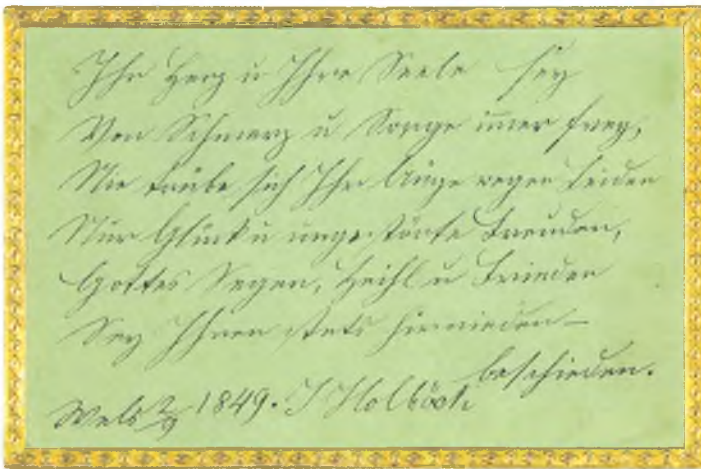 Ihr Herz u Ihre Seele sey
Von Schmerz u Sorge im̅er frey,
Nie trübe sich Ihr Auge wegen Leiden
Nur Glück u ungestörte Freuden,
Gottes Segen, Heihl u Frieden
Sey Ihnen stets hienieden –
beschieden.
Wels 2/9 1849. J Holböck